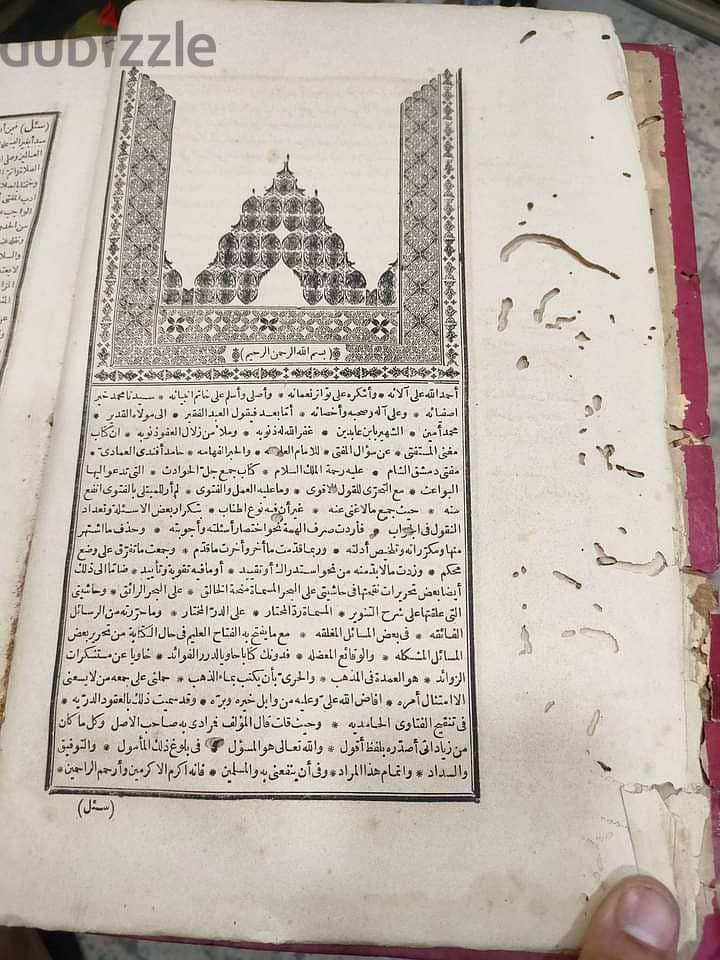 dubizzle
(بسم الله الرحمن الرحيم)
أحمد الله على آلائه * وأشكره على تواتر نعمائه * وأصلى وأسلم على خاتم انبيائه * سيدنا محمد خير
اصفيائه * وعلى آله وصحبه وأحصائه * أما بعد فيقول العبد الفقير * الى مولاه القدير *
محمد أمين * الشهير بابن عابدين * غفر الله له ذنوبه * وملأ من زلال العفو ذنوبه * ان كتاب
مغنى المستفتى * عن سؤال المفتى * للامام العلامه * والحبر الفهامه * حامد أفندى العمادى *
مفتى دمشق الشام * عليه رحمة الملك السلام * كتاب جمع جل الحوادث * التى تدعو اليها
البواعث * مع التحرى للقول الاقوى * وما عليه العمل والفتوى * لم أر للمبتلى بالفتوى انفع
منه * حيث جمع ما لا غنى عنه * غير أن فيه نوع اطناب * بتكرار بعض الاسئلة وتعداد
النقول فى الجواب * فأردت صرف الهمة نحو اختصار أسئلته وأجوبته * وحذف ما اشتهر
منها ومكرراته وتلخيص أدلته * وربما قدمت ما أخر وأخرت ما قدم * وجمعت ما تفرق على وضع
محكم * وزدت ما لا بد منه من نحو استدراك أو تقييد * أو ما فيه تقوية وتأييد * ضاما الى ذلك
أيضا بعض تحريرات نقحتها فى حاشيتى على البحر المسماة منحة الخالق * على البحر الرائق * وحاشيتى
التى علقتها على شرح التنوير * المسماة رد المحتار * على الدر المختار * وما حررته من الرسائل
الفائقه * فى بعض المسائل المغلقه * مع ما يفتح به الفتاح العليم فى حال الكتابة من تحرير بعض
المسائل المشكله * والوقائع المعضله * فدونك كتابا حاويا لدرر الفوائد * خاويا عن مستنكرات
الزوائد * هو العمدة فى المذهب * والحرى بأن يكتب بماء الذهب * حملنى على جمعه من لا يسعنى
الا امتثال أمره * افاض الله على وعليه من وابل خيره وبره * وقد سميت ذلك بالعقود الدريه *
فى تنقيح الفتاوى الحامديه * وحيث قلت قال المؤلف فمرادى به صاحب الاصل وكل ما كان
من زياداتى أصدره بلفظ أقول * والله تعالى هو المسؤل * فى بلوغ ذلك المأمول * والتوفيق
والسداد * واتمام هذا المراد * وفى أن ينفعنى به والمسلمين * فانه اكرم الاكرمين وأرحم الراحمين *
(سئل)
(سئل)